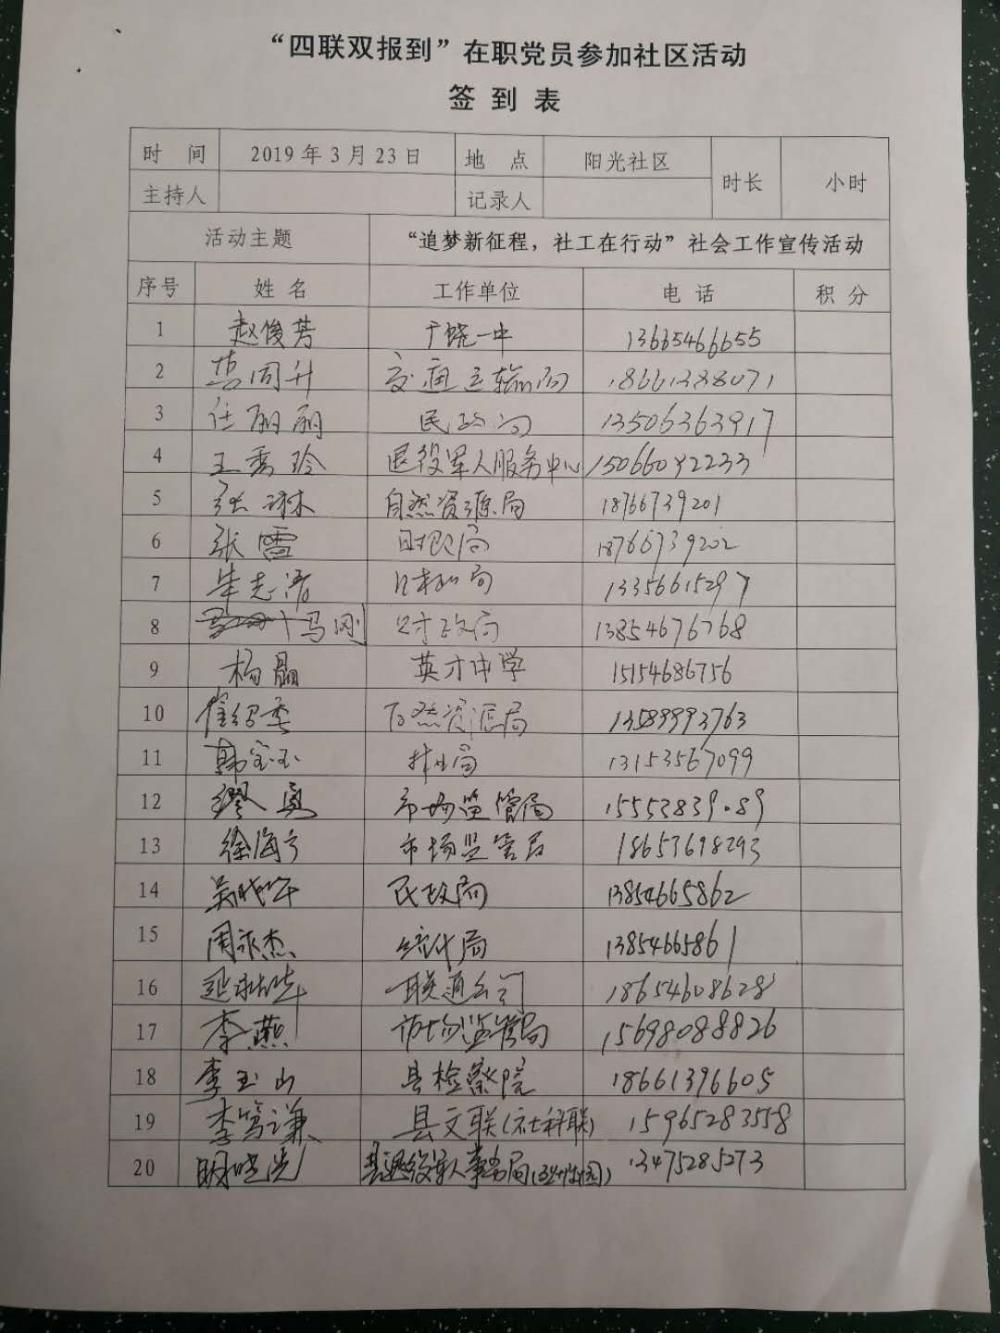 “四联双报到”在职党员参加社区活动
签 到 表
时 间 2019 年 3 月 23 日 地 点 阳光社区 时长 小时
主持人 记录人
活动主题 “追梦新征程，社工在行动”社会工作宣传活动
序号 姓 名 工作单位 电 话 积 分
1 赵俊芳 广饶一中 13665466655
2 交通运输局 18661388071
3 任丽丽 民政局 13506363917
4 王秀玲 退役军人服务中心 15066042233
5 张琳 自然资源局 18766739201
6 张雷 财政局 18766739202
7 13356615297
8 马刚 财政局 13854676768
9 杨晶 英才中学 15154686756
10 自然资源局 13589993763
11 韩宝玉 13153567099
12 缪勇 市场监管局 15552839089
13 徐海宁 市场监管局
14 民政局 13854665862
15 周永杰 统计局 13854665861
16 联通公司 18654608628
17 李燕 市场监管局 15698088826
18 李玉山 县检察院 18661396605
19 李笃谦 县文联(社科联) 15965283558
20 明晓光 县退役军人事务局 13475285273